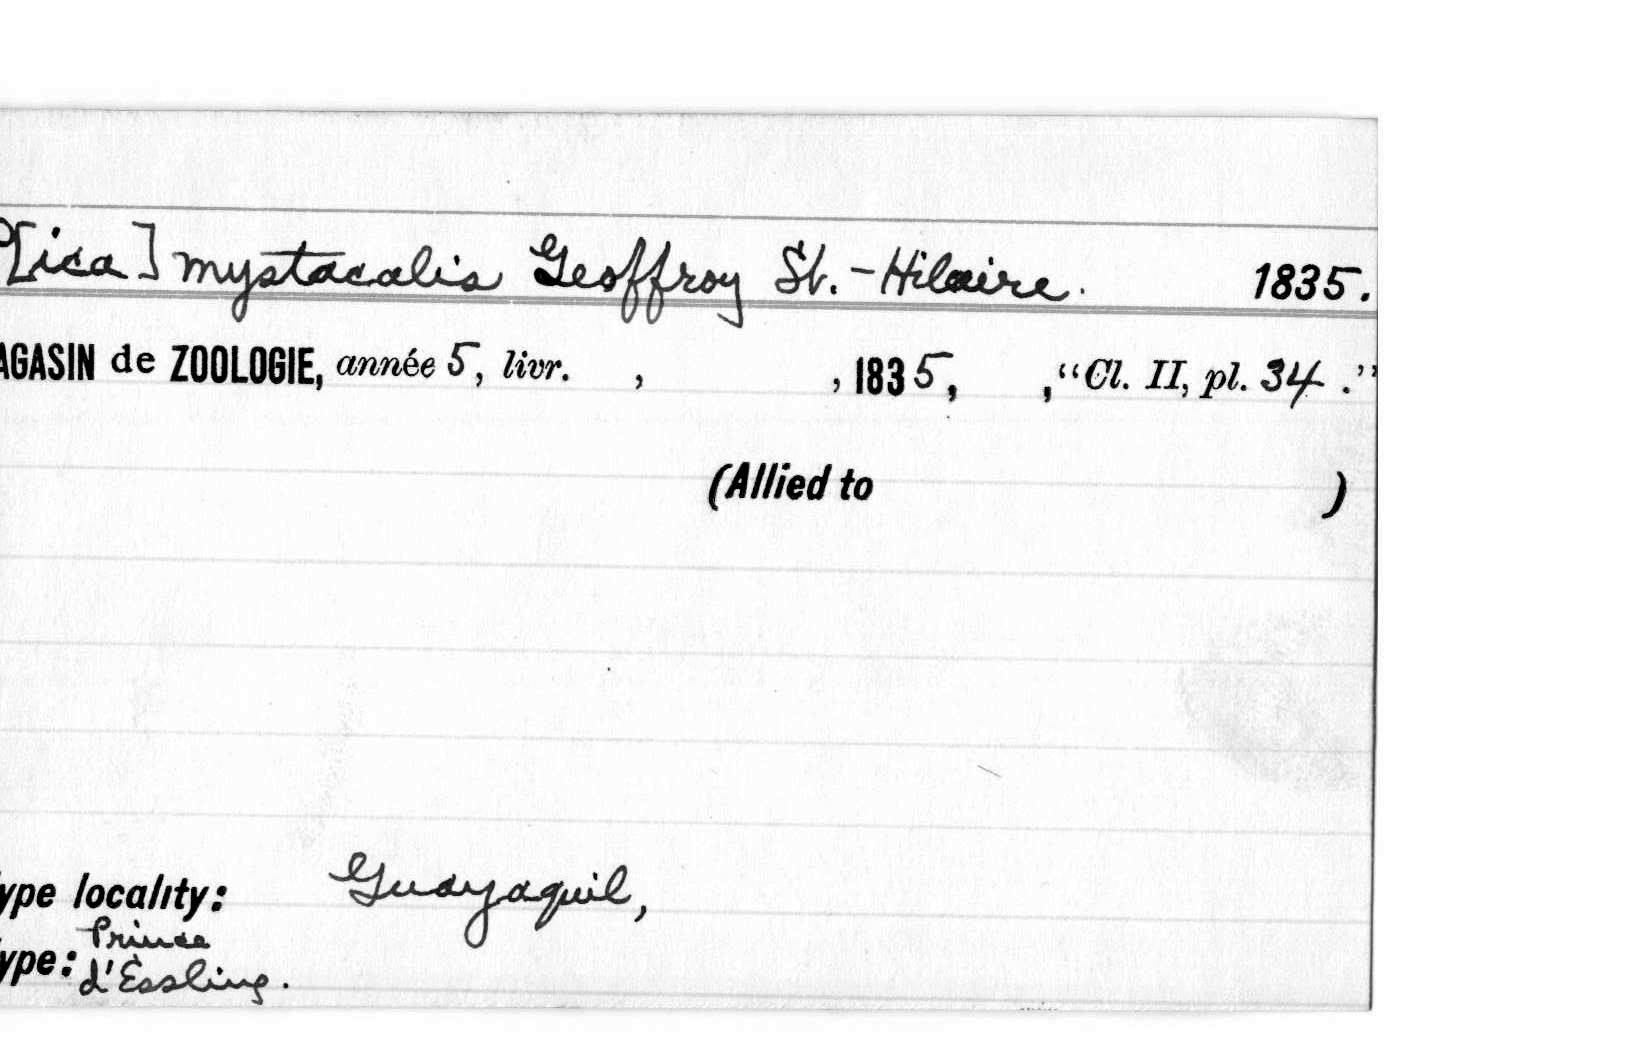 P[ica] mystacalis Geoffroy St.-Hilaire. 1835.
AGASIN de ZOOLOGIE, année 5, livr. , , 1835, , "Cl. II, pl. 34."
(Allied to )
ype locality: Guayaquil,
ype: Prince
d'Essling.